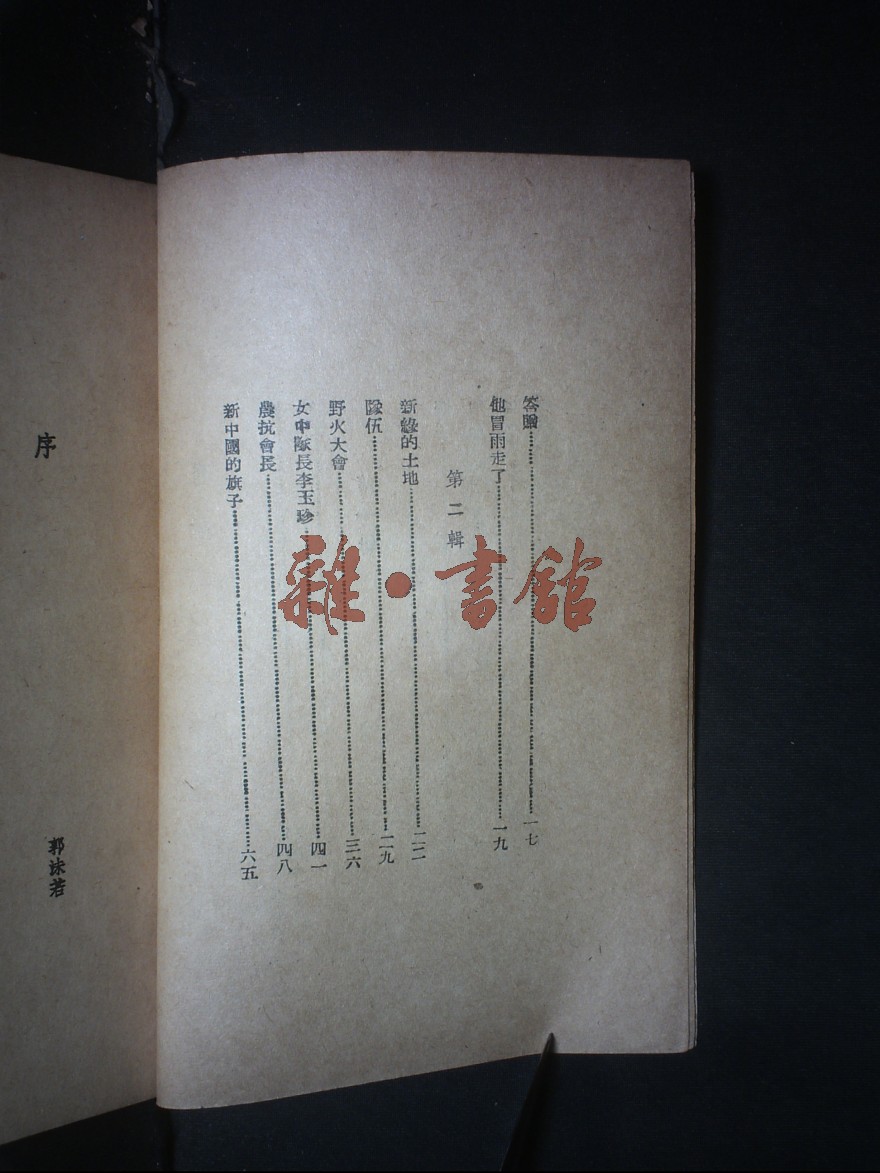 答贈……一七
他冒雨走了……一九
第二輯
新綠的土地……二二
隊伍……二九
野火大會……三六
女中隊長李玉珍……四一
農抗會長……四八
新中國的旗子……六五
序
郭沫若
雜·書館